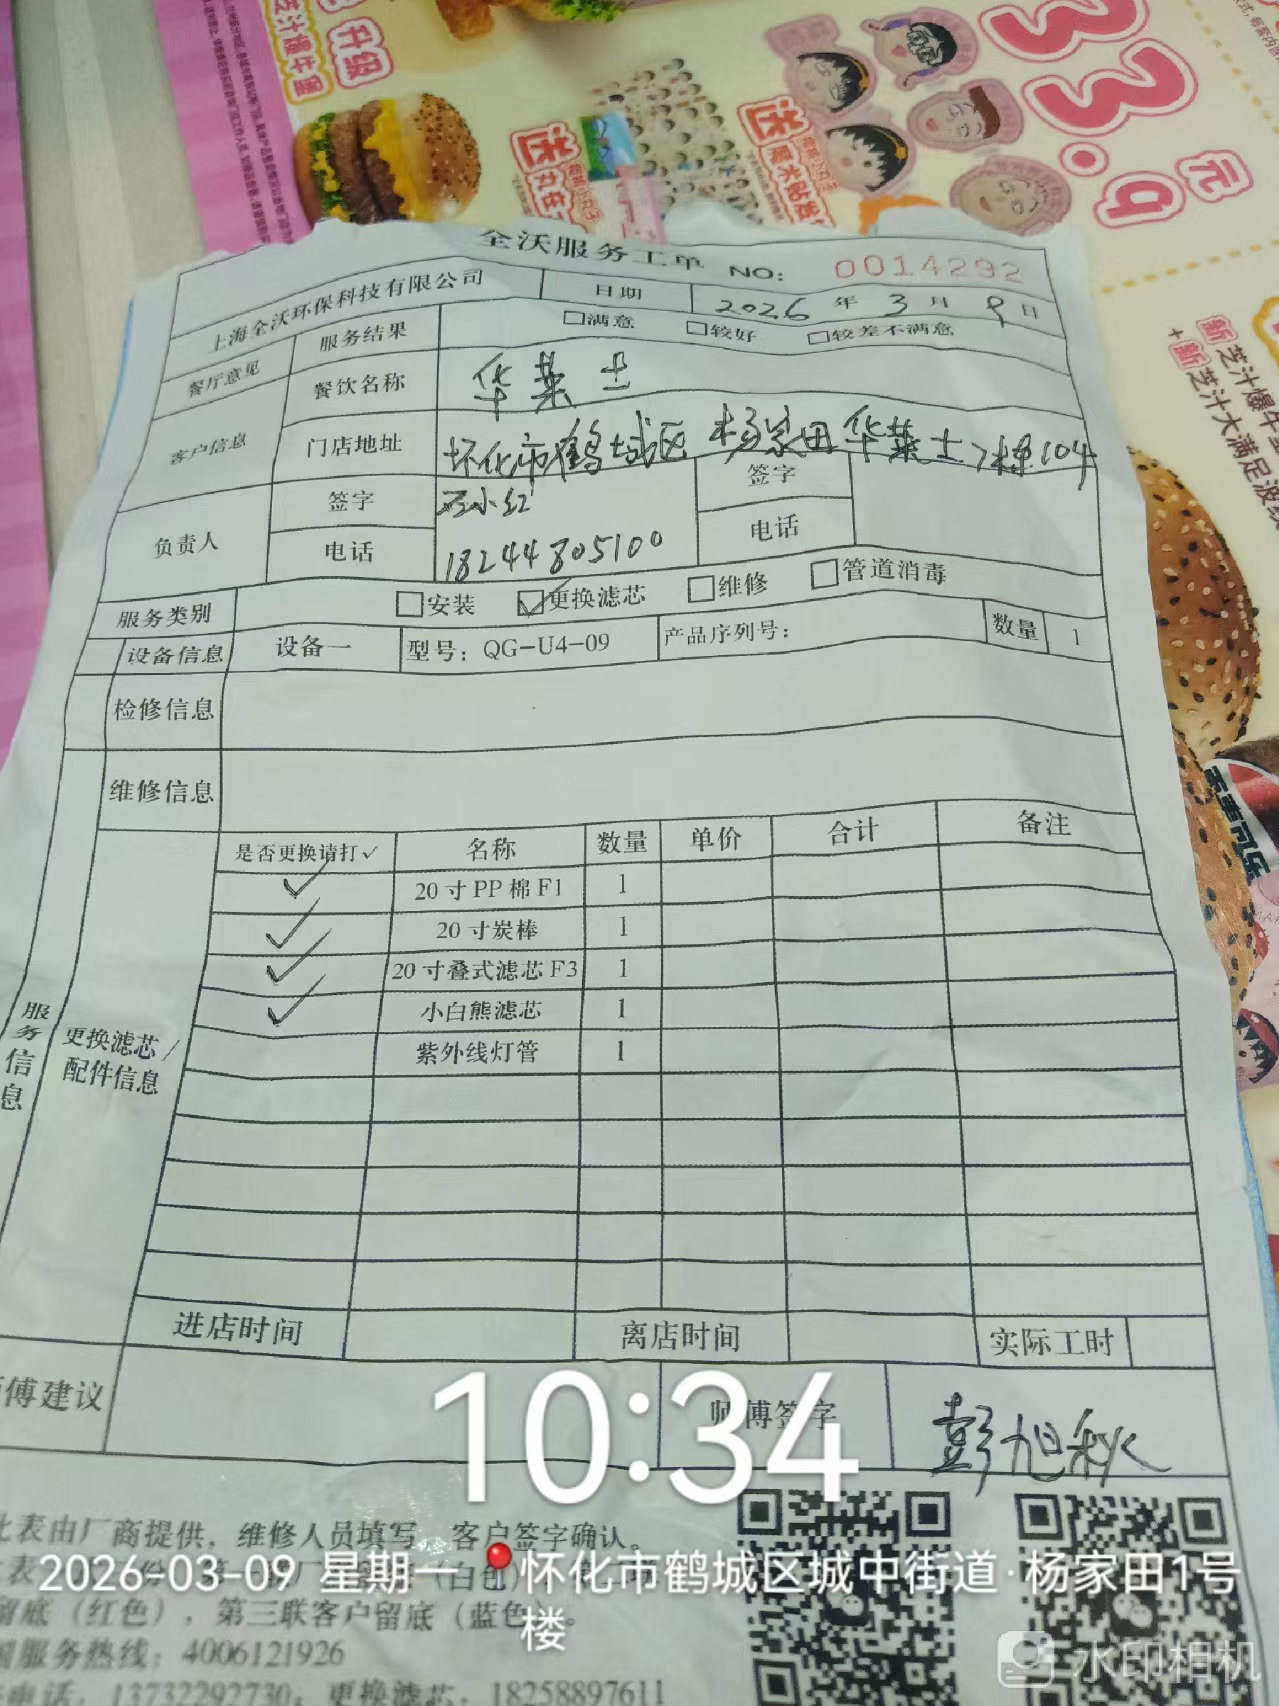 升级
芝汁爆牛堡
送
送
33.9
元
新 芝汁爆牛
+新 芝汁大满足波
全沃服务工单 NO: 0014292
上海全沃环保科技有限公司 日期 2026 年 3 月 9 日
餐厅意见 服务结果 □满意 □较好 □较差不满意
客户信息 餐饮名称 华莱士
门店地址 怀化市鹤城区杨家田华莱士7栋104
负责人 签字 石小红 签字
电话 18244805100 电话
服务类别 □安装 ☑更换滤芯 □维修 □管道消毒
设备信息 设备一 型号：QG-U4-09 产品序列号： 数量 1
检修信息
维修信息
服务信息
更换滤芯/配件信息
是否更换请打✓ 名称 数量 单价 合计 备注
✓ 20寸PP棉F1 1
✓ 20寸炭棒 1
✓ 20寸叠式滤芯F3 1
✓ 小白熊滤芯 1
紫外线灯管 1
进店时间 离店时间 实际工时
傅建议 师傅签字 彭旭秋
10:34
比表由厂商提供，维修人员填写，客户签字确认。
2026-03-09 星期一 怀化市鹤城区城中街道·杨家田1号楼
(白色)
留底（红色），第三联客户留底（蓝色）。
服务热线：4006121926
电话：13732292730；更换滤芯：18258897611
水印相机